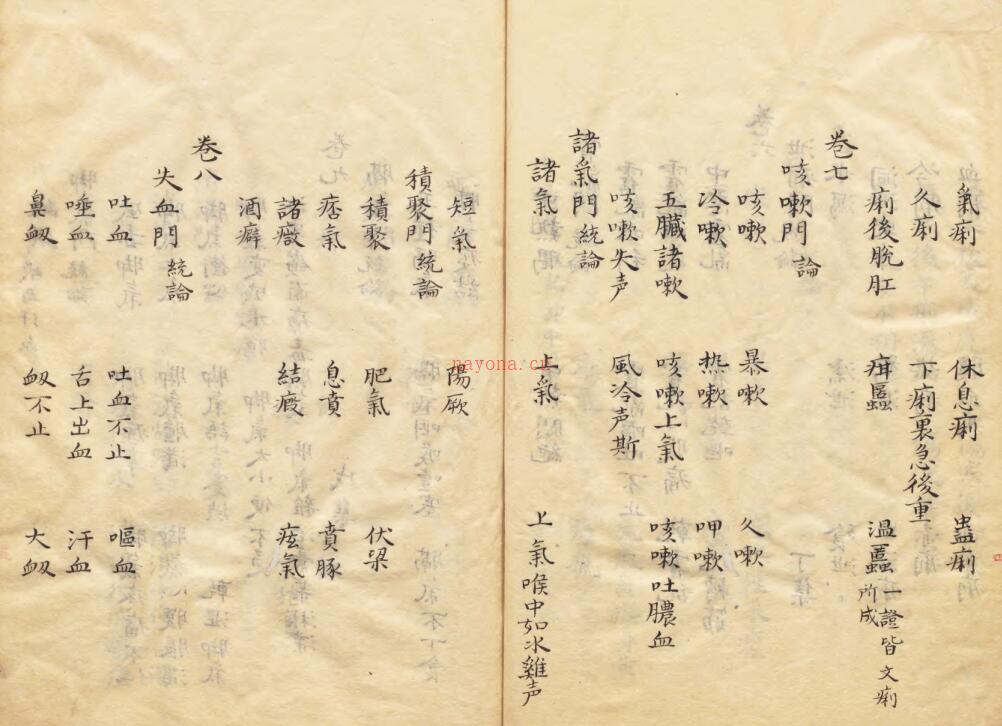 氣痢 休息痢 蠱痢
久痢 下痢裏急後重
痢後脫肛 疳䘌 溫䘌 一證皆文痢所成
卷七
咳嗽門 論
咳嗽 暴嗽 久嗽
冷嗽 热嗽 呷嗽
五臟諸嗽 咳嗽上氣 咳嗽吐膿血
咳嗽失声 風冷声斯
諸氣門 統論
諸氣 上氣 上氣喉中如水雞声
短氣 陽厥
積聚門 統論
積聚 肥氣 伏梁
痞氣 息賁 賁豚
諸癥 結瘕 痃氣
酒癖
卷八
失血門 統論
吐血 吐血不止 嘔血
唾血 舌上出血 汗血
鼻衂 衂不止 大衂
nayona.cn